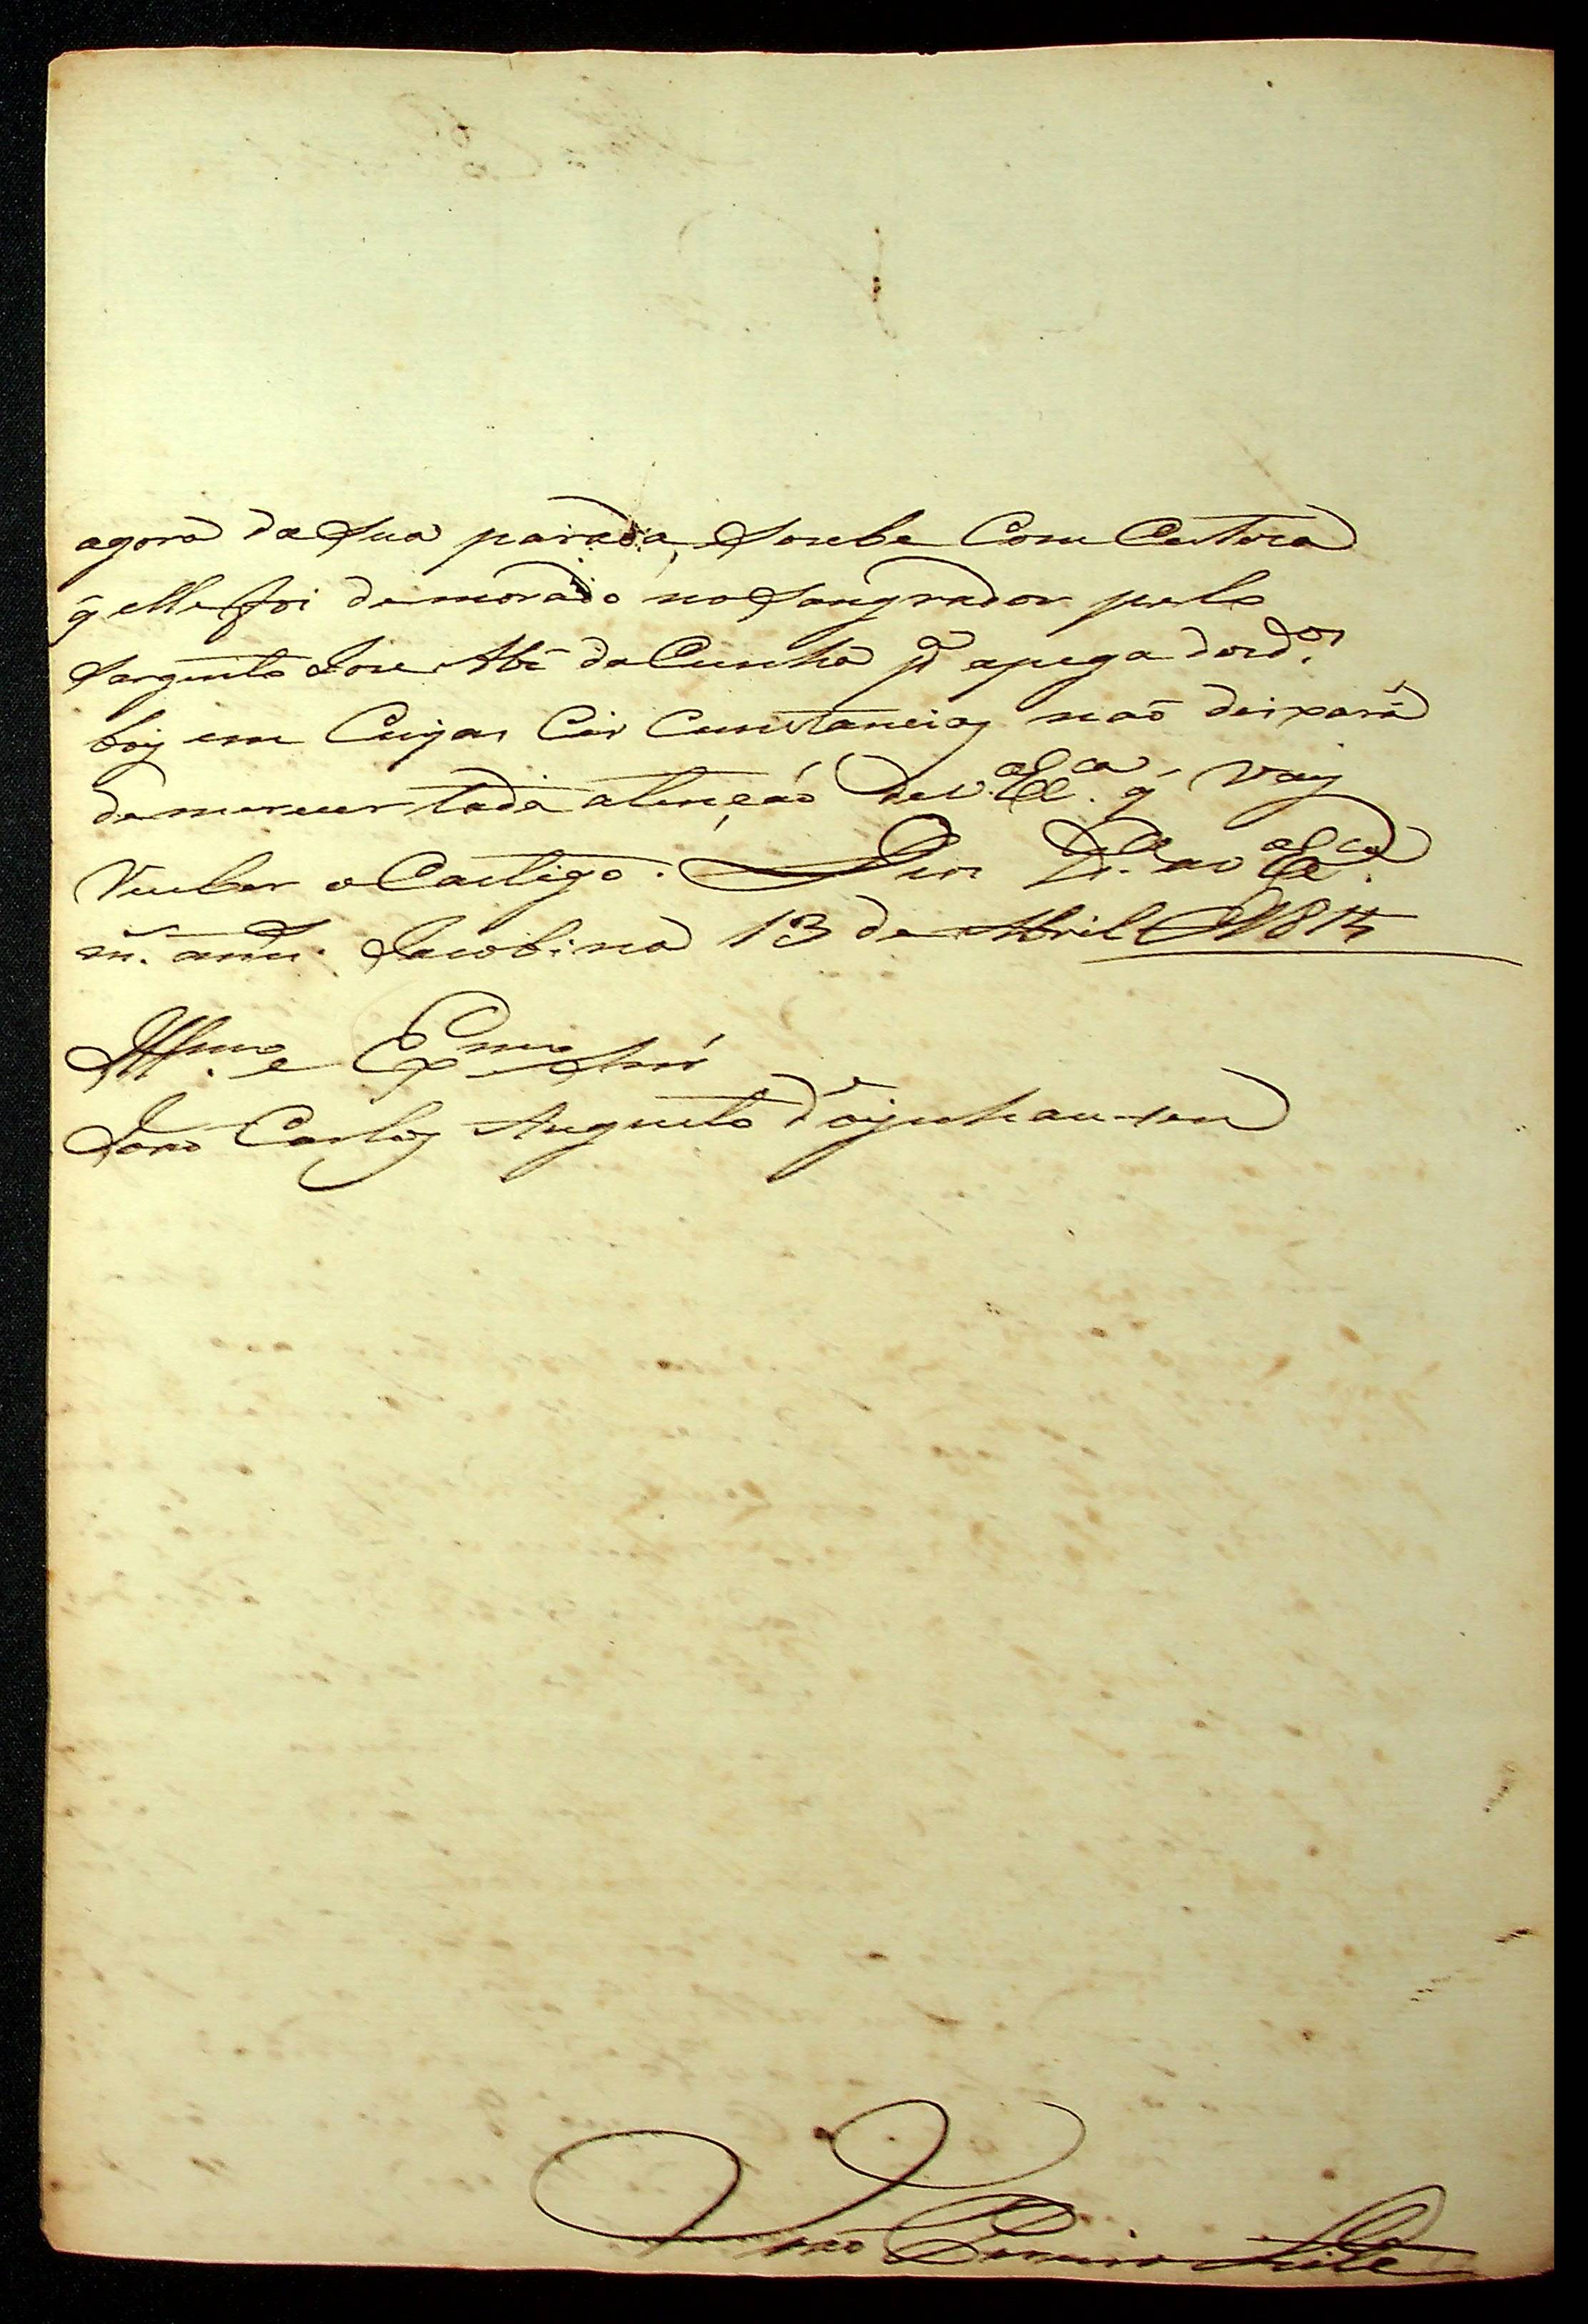 agora da Sua parada, Soube Com Certeza
q̃ elle foi demorado no Sangrador pelo
Sargento Joze Abĩ da Cunha pᵃ apega dos dᵒˢ
boiz em Cujas Cir Cunstanciaz naõ deixará
demerecer toda atençaõ de V. Exᶜᵃ q̃ vay
o Castigo. Deos Gᵉ. a V Exᶜᵃ
m̃. ann̄. Jacobina 13 de Abril 1815
Illmo. e Exmo Snr
Joaõ Carloz Augusto d'oyenhausen
Joaõ Pereira Leite